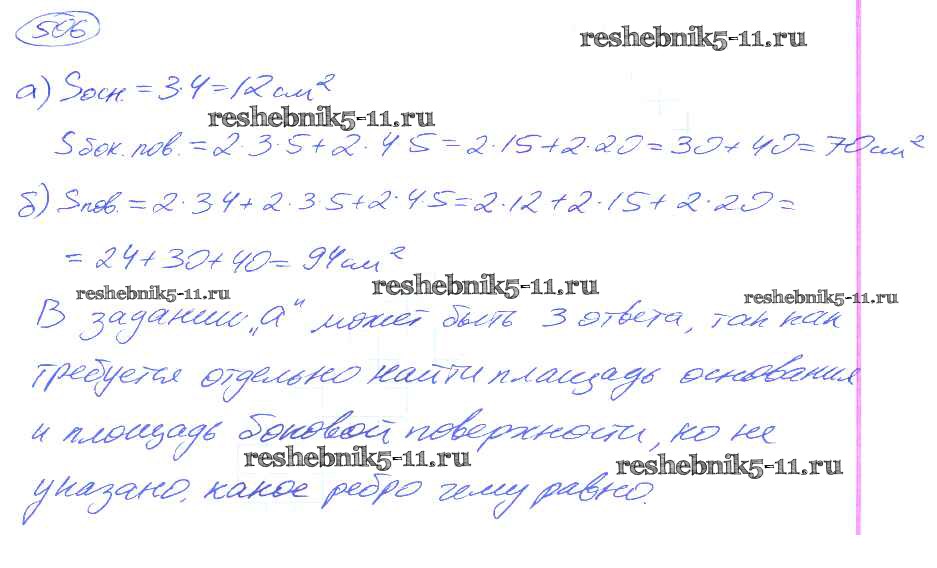 506
reshebnik5-11.ru
а) Sосн. = 3·4 = 12 см²
reshebnik5-11.ru
Sбок. пов. = 2·3·5 + 2·4 5 = 2·15 + 2·20 = 30 + 40 = 70 см²
б) Sпов. = 2·3 4 + 2·3 5 + 2·4 5 = 2·12 + 2·15 + 2·20 =
= 24 + 30 + 40 = 94 см²
reshebnik5-11.ru reshebnik5-11.ru reshebnik5-11.ru
В задании „а" может быть 3 ответа, так как
требуется отдельно найти площадь основания
и площадь боковой поверхности, но не
reshebnik5-11.ru reshebnik5-11.ru
указано, какое ребро чему равно.